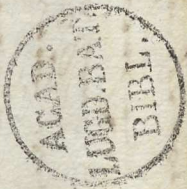 ACAD.
LUGD.BAT
BIBL.